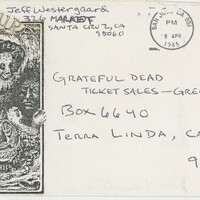 Jeff Westergaard
326 MARKET
SANTA CRUZ, CA
95060
SAN JOSE CA 951
PM
18 APR
1985
GRATEFUL DEAD
TICKET SALES - GRE
BOX 6640
TERRA LINDA, CA
9